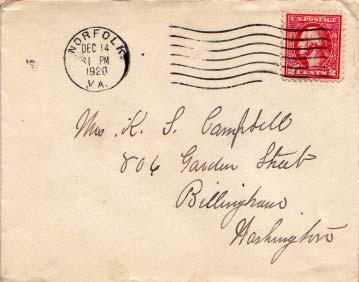 NORFOLK
DEC 14
1 PM
1920
VA.
U.S. POSTAGE
2 CENTS 2
Mrs. K. S. Campbell
806 Garden Street
Billingham
Washington